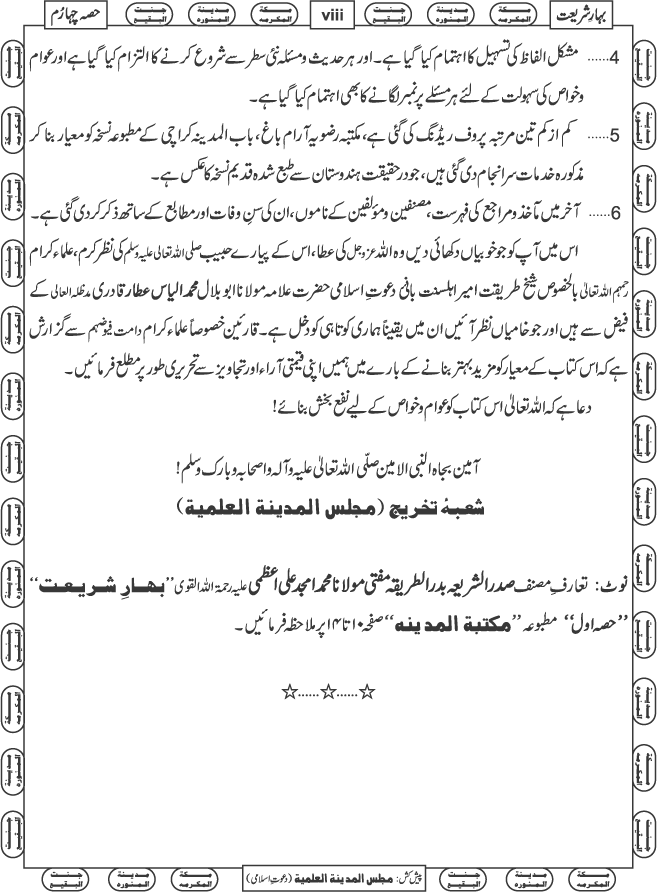 بہارِ شریعت
مکۃ المکرمہ
مدینۃ المنورہ
جنت البقیع
viii
مکۃ المکرمہ
مدینۃ المنورہ
جنت البقیع
حصہ چہارم
4...... مشکل الفاظ کی تسہیل کا اہتمام کیا گیا ہے۔ اور ہر حدیث و مسئلہ نئی سطر سے شروع کرنے کا التزام کیا گیا ہے اور عوام
و خواص کی سہولت کے لئے ہر مسئلے پر نمبر لگانے کا بھی اہتمام کیا گیا ہے۔
5...... کم از کم تین مرتبہ پروف ریڈنگ کی گئی ہے، مکتبہ رضویہ آرام باغ، باب المدینہ کراچی کے مطبوعہ نسخہ کو معیار بنا کر
مذکورہ خدمات سرانجام دی گئی ہیں، جو درحقیقت ہندوستان سے طبع شدہ قدیم نسخہ کا عکس ہے۔
6...... آخر میں مآخذ و مراجع کی فہرست، مصنفین و مؤلفین کے ناموں، ان کی سنِ وفات اور مطابع کے ساتھ ذکر کر دی گئی ہے۔
اس میں آپ کو جو خوبیاں دکھائی دیں وہ اللہ عزوجل کی عطا، اس کے پیارے حبیب صلی اللہ تعالیٰ علیہ وسلم کی نظر کرم، علماء کرام
رحمہم اللہ تعالیٰ بالخصوص شیخ طریقت امیر اہلسنت بانیِ دعوتِ اسلامی حضرت علامہ مولانا ابو بلال محمد الیاس عطار قادری مدظلہ العالی کے
فیض سے ہیں اور جو خامیاں نظر آئیں ان میں یقیناً ہماری کوتاہی کو دخل ہے۔ قارئین خصوصاً علماء کرام دامت فیوضہم سے گزارش
ہے کہ اس کتاب کے معیار کو مزید بہتر بنانے کے بارے میں ہمیں اپنی قیمتی آراء اور تجاویز سے تحریری طور پر مطلع فرمائیں۔
دعا ہے کہ اللہ تعالیٰ اس کتاب کو عوام و خواص کے لیے نفع بخش بنائے!
آمین بجاہ النبی الامین صلّی اللہ تعالیٰ علیہ و آلہ و اصحابہ و بارک و سلم!
شعبۂ تخریج (مجلس المدینۃ العلمیۃ)
نوٹ: تعارفِ مصنف صدر الشریعہ بدر الطریقہ مفتی مولانا محمد امجد علی اعظمی علیہ رحمۃ اللہ القوی ”بہارِ شریعت“
”حصہ اول“ مطبوعہ ”مکتبۃ المدینہ“ صفحہ ۱۰ تا ۱۴ پر ملاحظہ فرمائیں۔
☆......☆......☆
مکۃ المکرمہ
مدینۃ المنورہ
جنت البقیع
پیش کش: مجلس المدینۃ العلمیۃ (دعوتِ اسلامی)
مکۃ المکرمہ
مدینۃ المنورہ
جنت البقیع